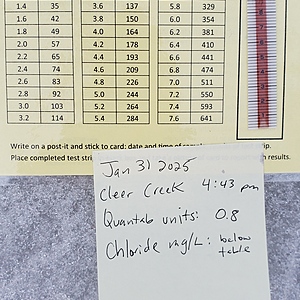 1.4 35 3.6 137 5.8 329
1.6 42 3.8 150 6.0 354
1.8 49 4.0 164 6.2 381
2.0 57 4.2 178 6.4 410
2.2 65 4.4 193 6.6 441
2.4 74 4.6 209 6.8 474
2.6 83 4.8 226 7.0 511
2.8 92 5.0 244 7.2 550
3.0 103 5.2 264 7.4 593
3.2 114 5.4 284 7.6 641
Write on a post-it and stick to card: date and time of
Place completed test
Jan 31 2025
Cleer Creek 4:43 pm
Quantab units: 0.8
Chloride mg/L: below
table